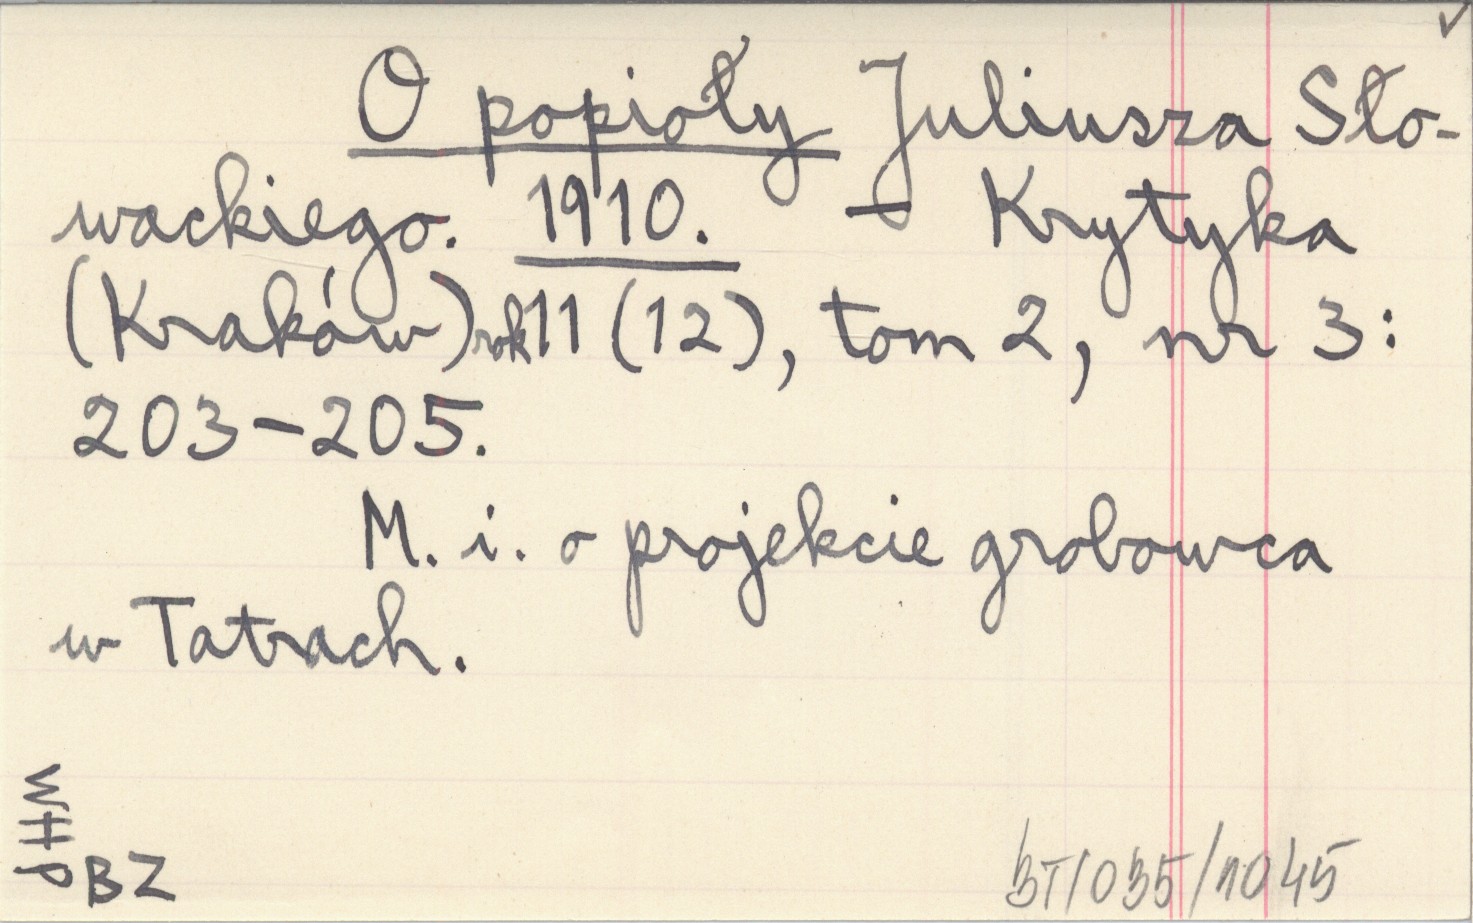 O popioły Juliusza Sło-
wackiego. 1910. – Krytyka
(Kraków) rok 11 (12), tom 2, nr 3:
203–205.
M. i. o projekcie grobowca
w Tatrach.
WHP
BZ
BT/035/1045